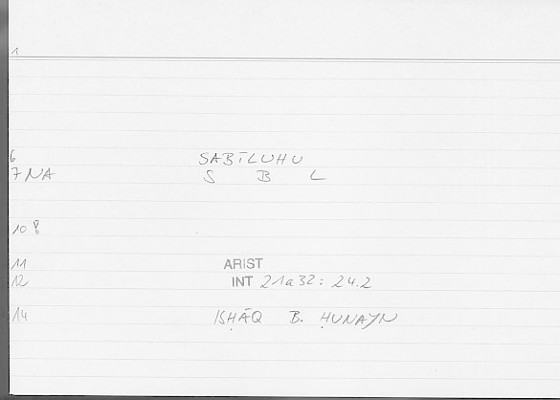 1
6 SABĪLUHU
7 NA S B L
10 8
11 ARIST
12 INT 21a32: 24.2
14 ISḤĀQ B. ḤUNAYN